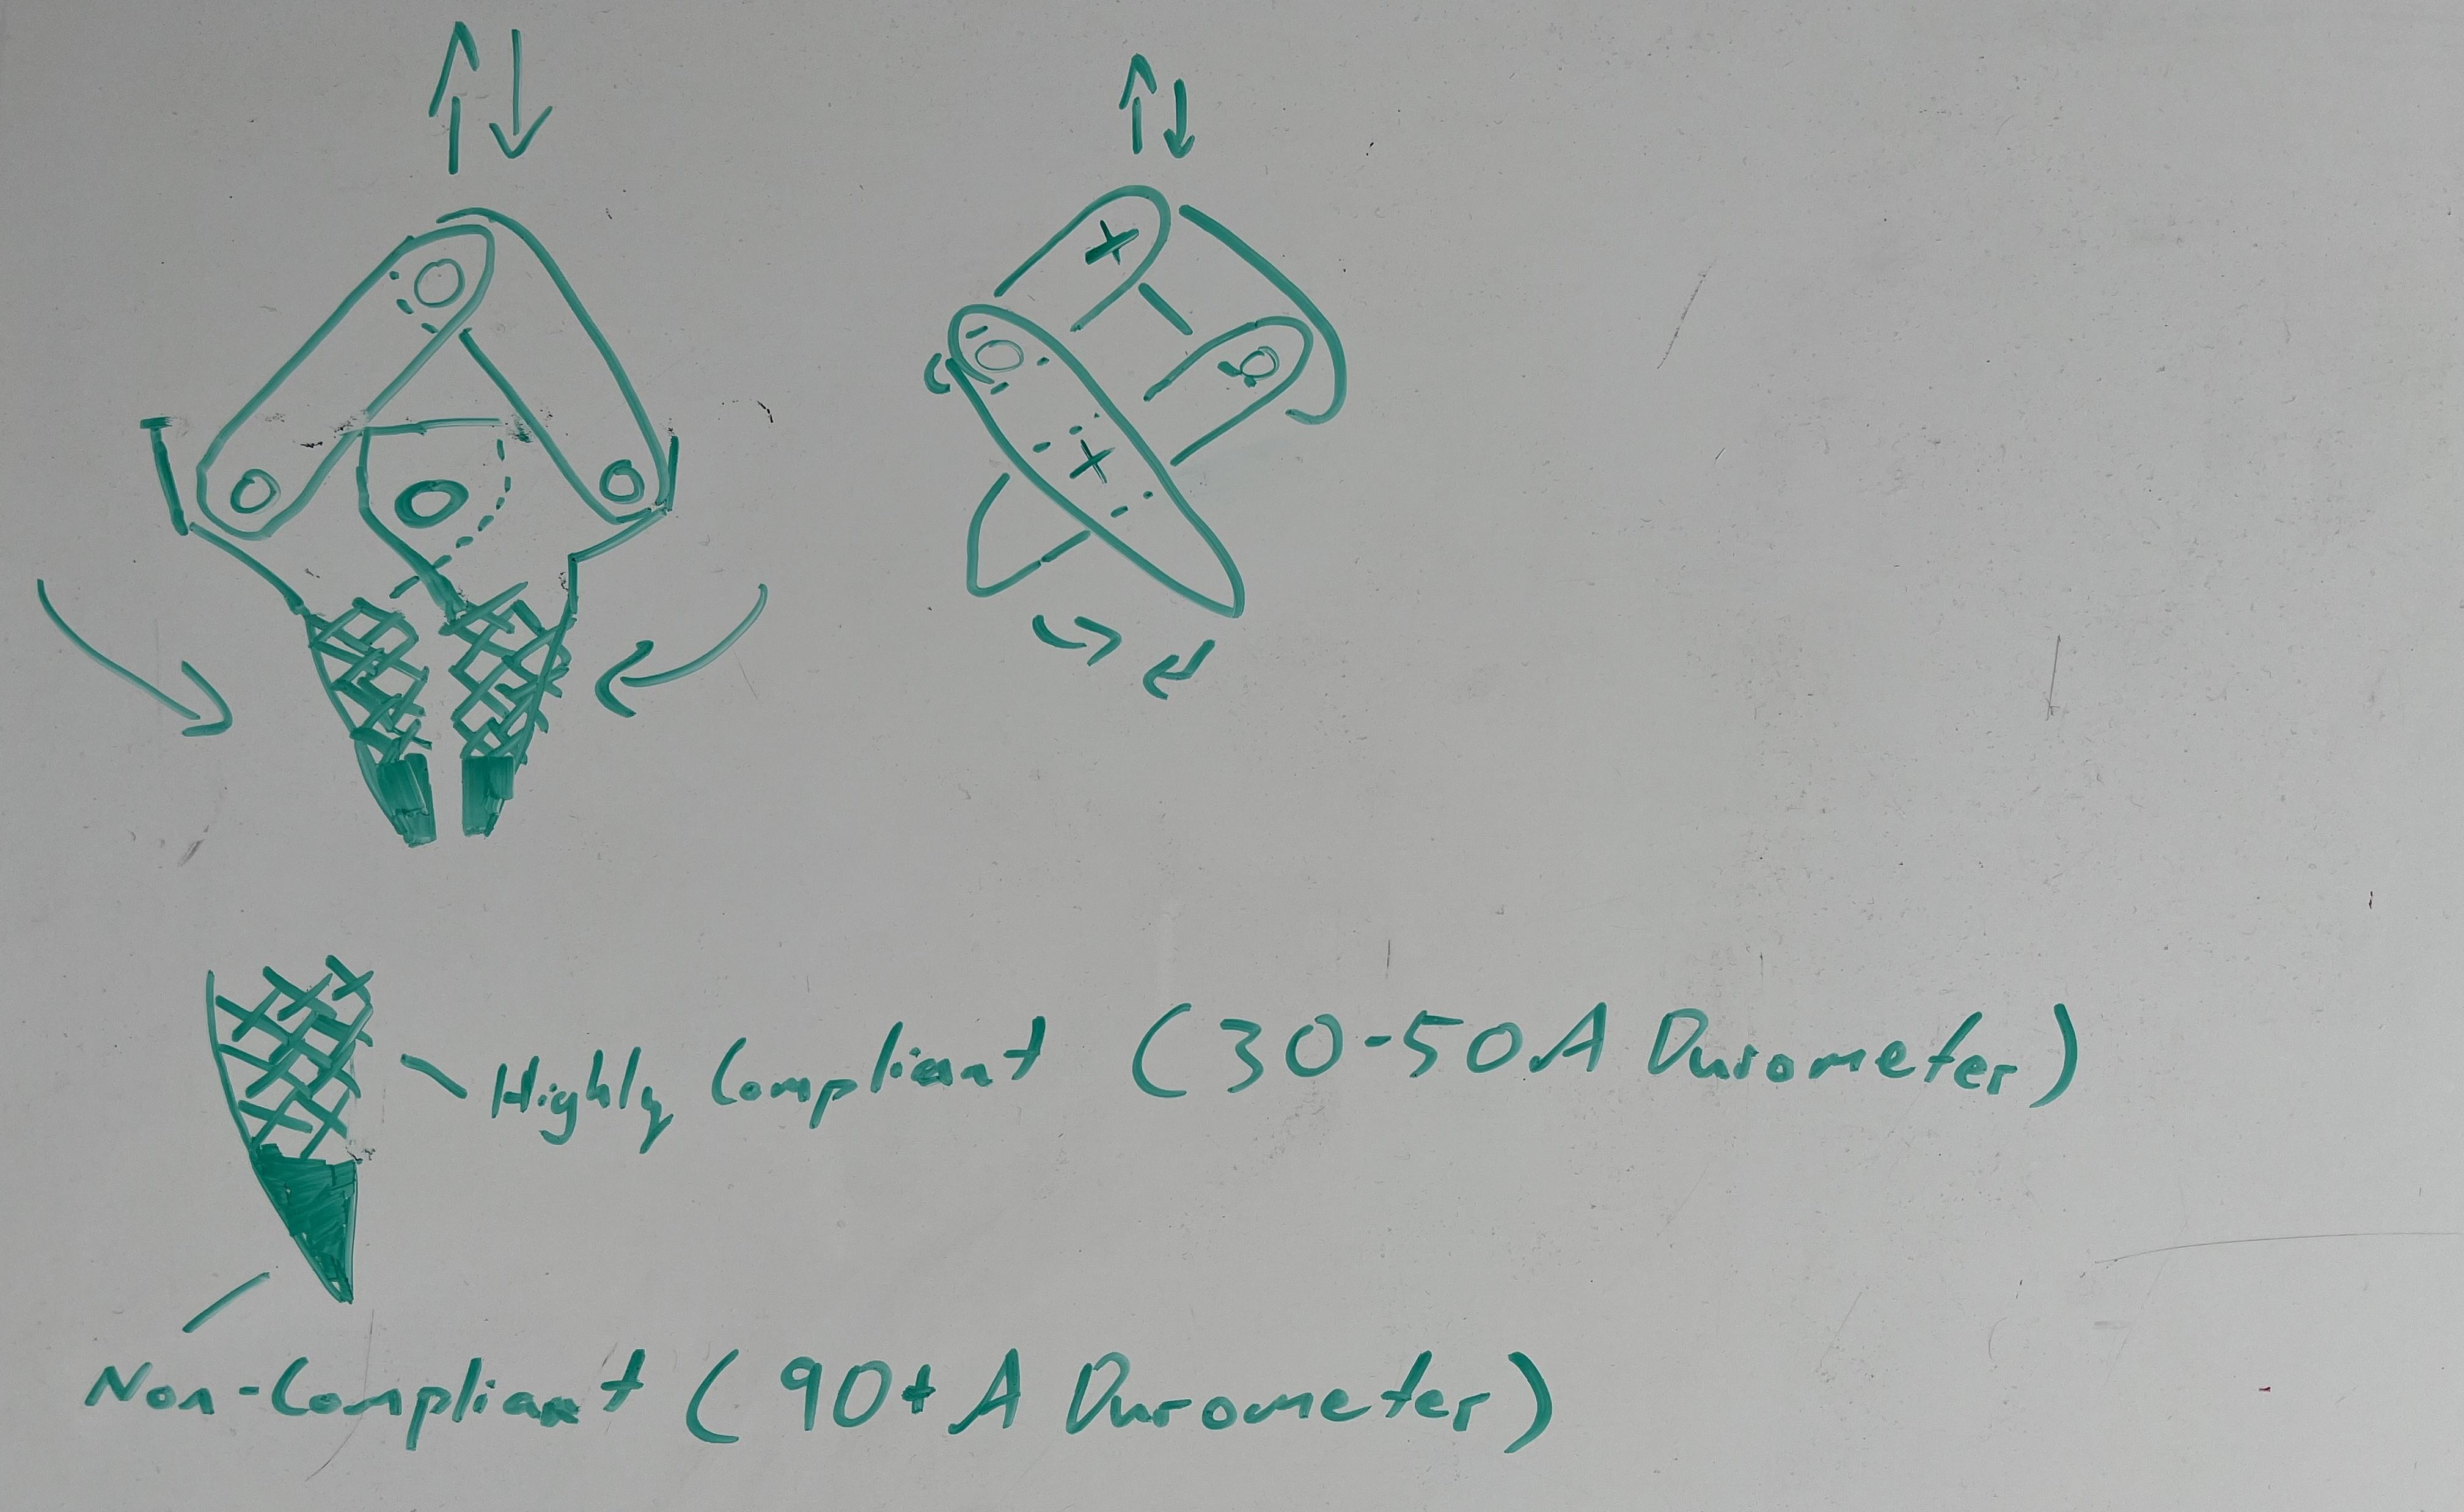 Highly Compliant (30-50A Durometer)
Non-Compliant (90+A Durometer)